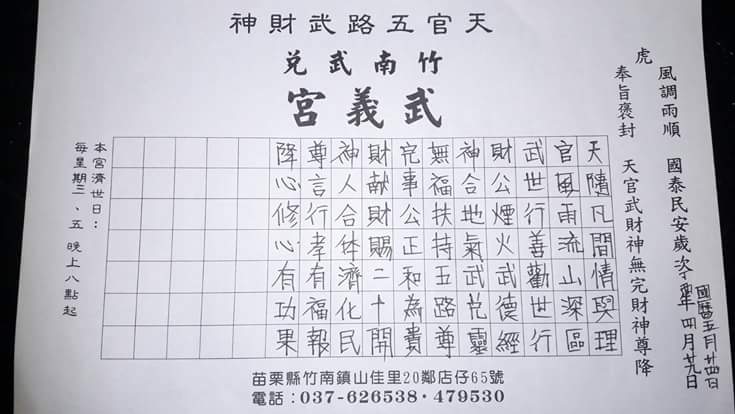 天官五路武財神
竹南武兌
武義宮
風調雨順 國泰民安歲次丁酉年四月廿九日
國曆五月廿四日
虎
奉旨褒封 天官武財神無完財神尊降
天隨凡間情與理
官風雨流山深區
武世行善勸世行
財公煙火武德經
神合地氣武兌靈
無福扶持五路尊
完事公正和為貴
財獻財賜二十開
神人合体濟化民
尊言行孝有福報
降心修心有功果
本宮濟世日：
每星期三、五 晚上八點起
苗栗縣竹南鎮山佳里20鄰店仔65號
電話：037-626538・479530